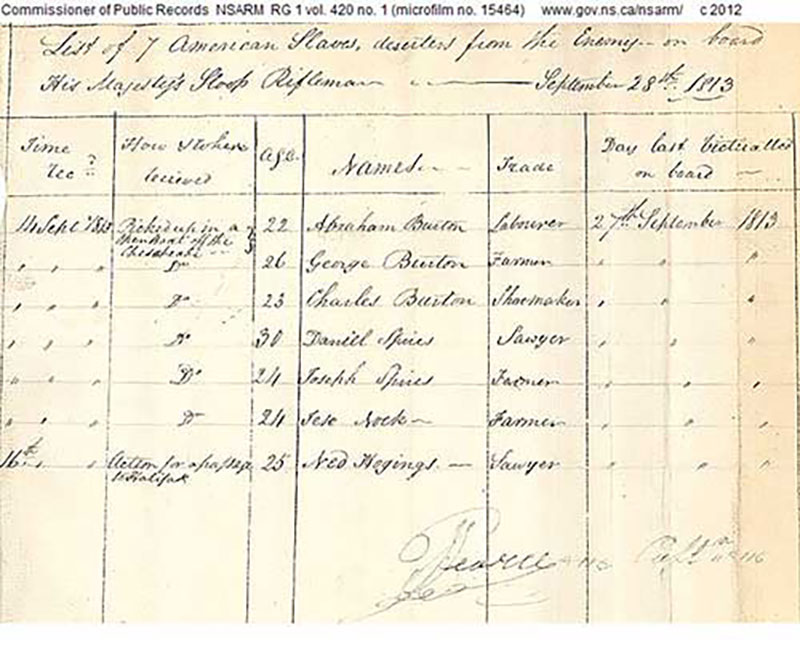 Commissioner of Public Records NSARM RG 1 vol. 420 no. 1 (microfilm no. 15464) www.gov.ns.ca/nsarm/ c 2012
List of 7 American Slaves, deserters from the Enemy on board
His Majesty's Sloop Rifleman — September 28th. 1813
Time Rec'd How & where received Age Names Trade Day last Victualled on board
14 Sept 1813 Picked up in a open boat off the Chesapeake 22 Abraham Burton Labourer 27th September 1813
" " " Do 26 George Burton Farmer " " "
" " " Do 23 Charles Burton Shoemaker " " "
" " " Do 30 Daniel Spires Sawyer " " "
" " " Do 24 Joseph Spires Farmer " " "
" " " Do 24 Jese Nock Farmer " " "
16th " " for a passage to Halifax 25 Ned Hogings Sawyer " " "
Pearce Captn